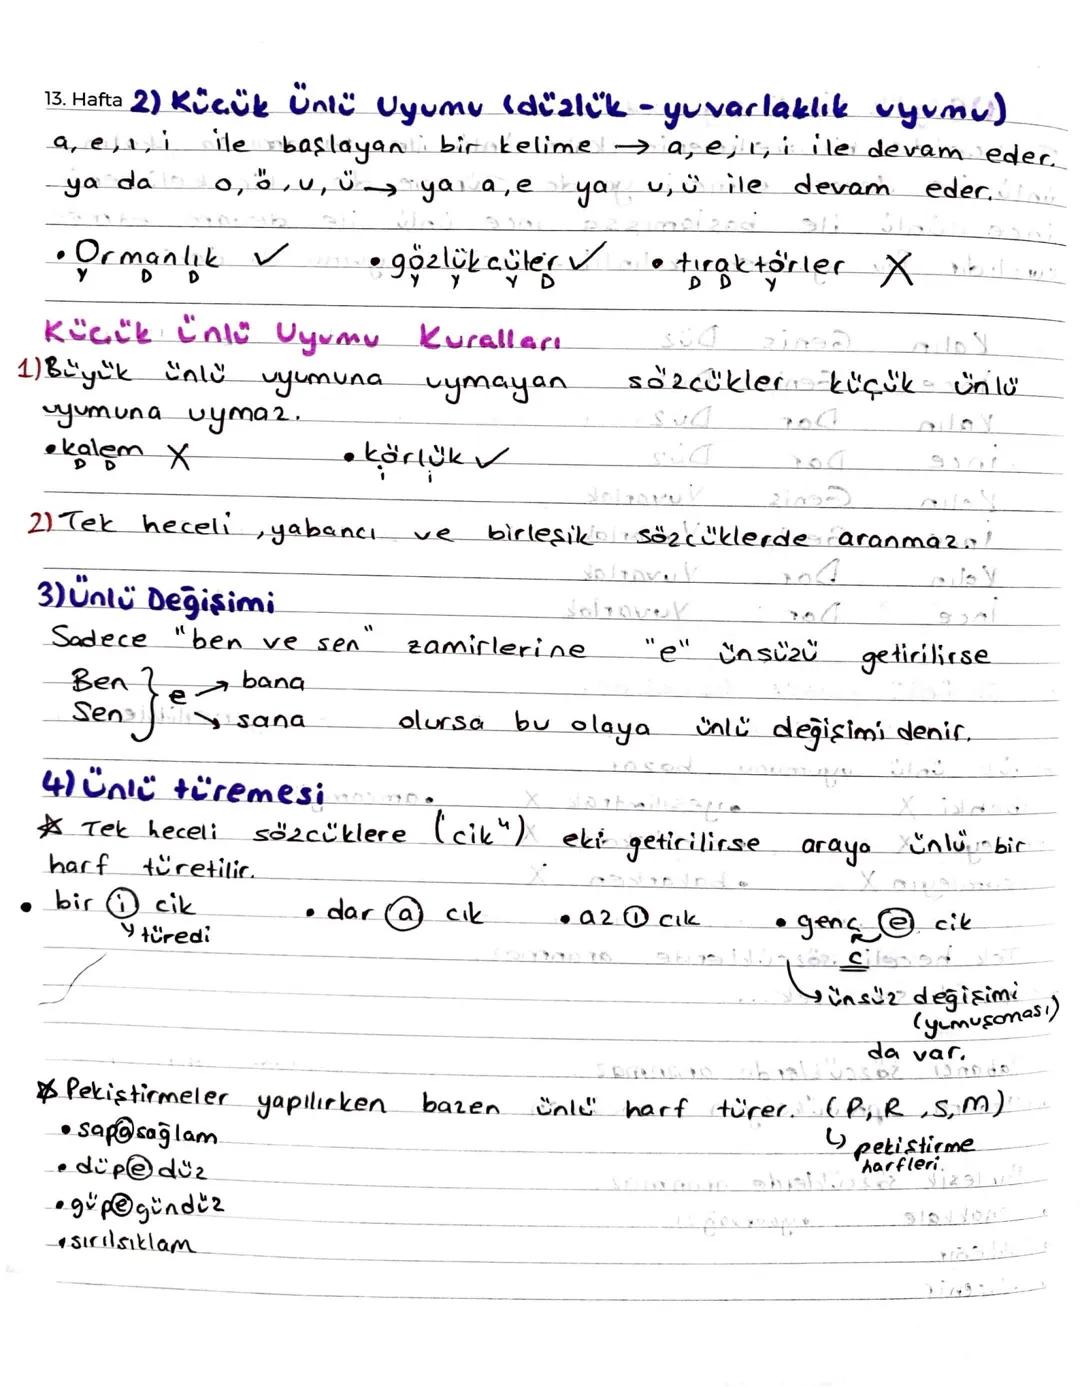 13. Hafta 2) Küçük Ünlü Uyumu (düzlük - yuvarlaklık uyumu)
a, e, ı, i ile başlayan bir kelime → a, e, ı, i ile devam eder.
ya da o, ö, u, ü → ya a, e ya u, ü ile devam eder.
• Ormanlık ✓ • gözlükçüler ✓ • tıraktörler X
Y D D Y Y Y D D D Y
Küçük Ünlü Uyumu Kuralları
1) Büyük ünlü uyumuna uymayan sözcükler küçük ünlü
uyumuna uymaz.
• kalem X • körlük ✓
D D i i
2) Tek heceli, yabancı ve birleşik sözcüklerde aranmaz.
3) Ünlü Değişimi
Sadece "ben ve sen" zamirlerine "e" ünsüzü getirilirse
Ben } e → bana
Sen → sana olursa bu olaya ünlü değişimi denir.
4) Ünlü türemesi
Tek heceli sözcüklere ("cik") eki getirilirse araya ünlü bir
harf türetilir.
• bir i cik • dar a cık • az ı cık • genç e cik
türedi c
ünsüz değişimi
(yumuşaması)
da var.
Pekiştirmeler yapılırken bazen ünlü harf türer. (P, R, S, M)
• sapasağlam pekiştirme
harfleri.
• düpedüz
• güpegündüz
• sırılsıklam